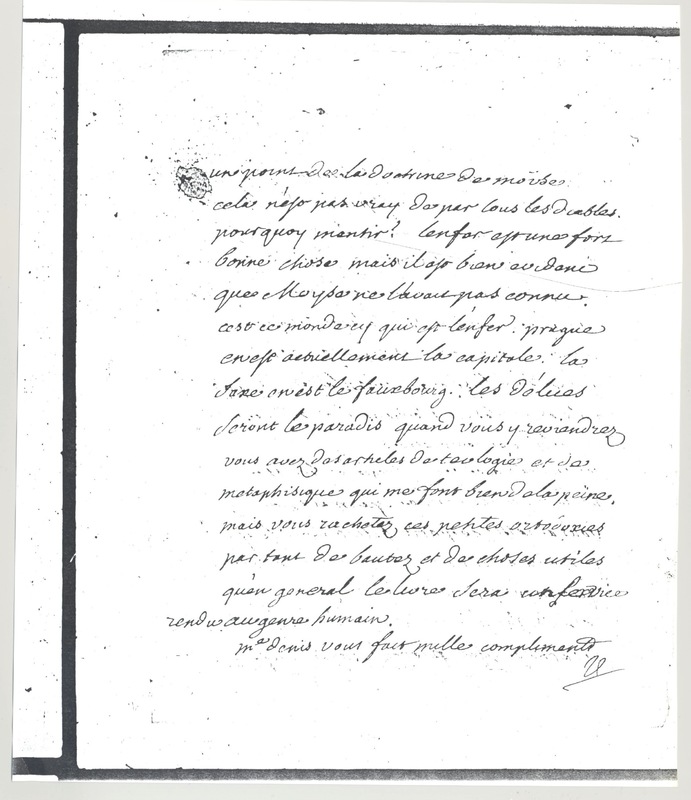 un point de la doctrine de moïse.
cela n'est pas vray de par tous les diables.
pourquoy mentir? lenfer est une fort
bonne chose mais il est bien evident
que Moyse ne l'avait pas connu.
cest ce monde cy qui est lenfer. prague
en est actuellement la capitale. la
Saxe en est le fauxbourg. les délices
seront le paradis quand vous y reviendrez
vous avez des articles de teologie et de
metaphisique qui me font bien de la peine.
mais vous rachetez ces petites ortodoxies
par tant de bautez et de choses utiles
qu'en general le livre sera un service
rendu au genre humain.
me denis vous fait mille compliments
V